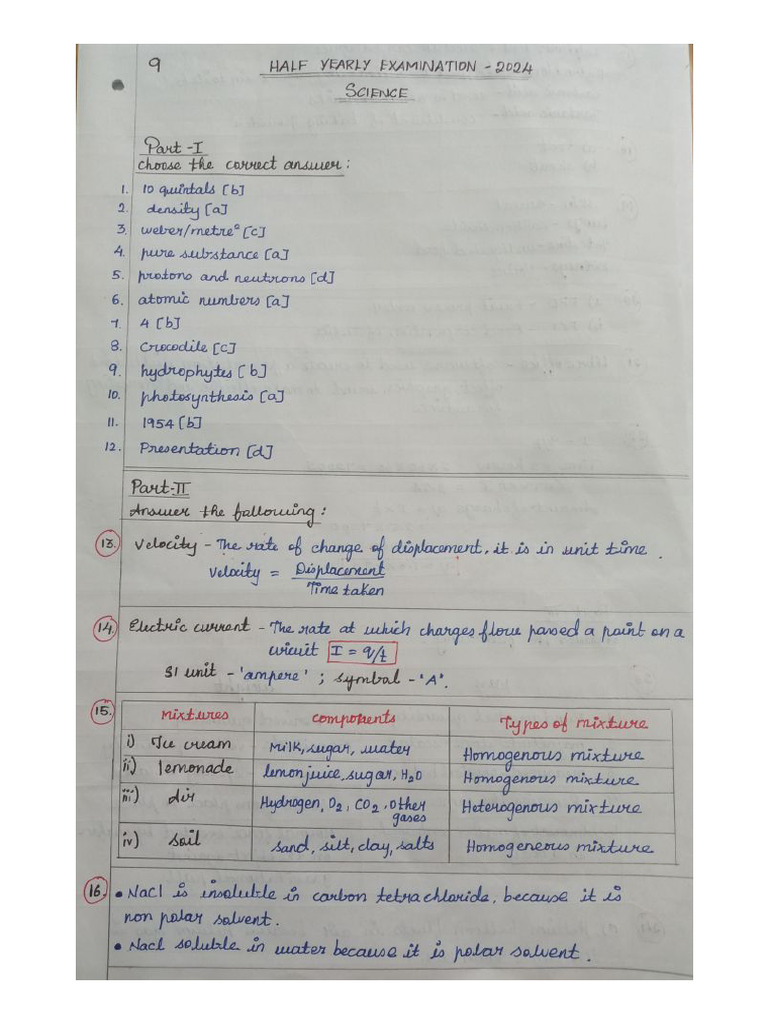 9 HALF YEARLY EXAMINATION - 2024
SCIENCE
Part - I
Choose the correct answer :
1. 10 quintals [b]
2. density [a]
3. weber/metre² [c]
4. pure substance [a]
5. protons and neutrons [d]
6. atomic numbers [a]
7. 4 [b]
8. Crocodile [c]
9. hydrophytes [b]
10. photosynthesis [a]
11. 1954 [b]
12. Presentation [d]
Part-II
Answer the following :
13. Velocity - The rate of change of displacement, it is in unit time.
Velocity = Displacement
Time taken
14. Electric current - The rate at which charges flow passed a point on a
circuit I = q/t
SI unit - 'ampere' ; symbol - 'A'.
15. Mixtures components Types of mixture
i) Ice cream Milk, sugar, water Homogenous mixture
ii) lemonade lemon juice, sugar, H₂O Homogenous mixture
iii) air Hydrogen, O₂, CO₂, other gases Heterogenous mixture
iv) soil sand, silt, clay, salts Homogeneous mixture
16. • NaCl is insoluble in carbon tetrachloride, because it is
non polar solvent.
• Nacl soluble in water because it is polar solvent.